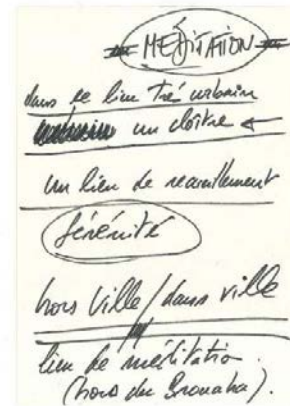 MÉDITATION
dans ce lieu tré urbain
un cloître
un lieu de recueillement
Sérénité
hors ville / dans ville
lieu de méditation.
(hors du Brouaha).